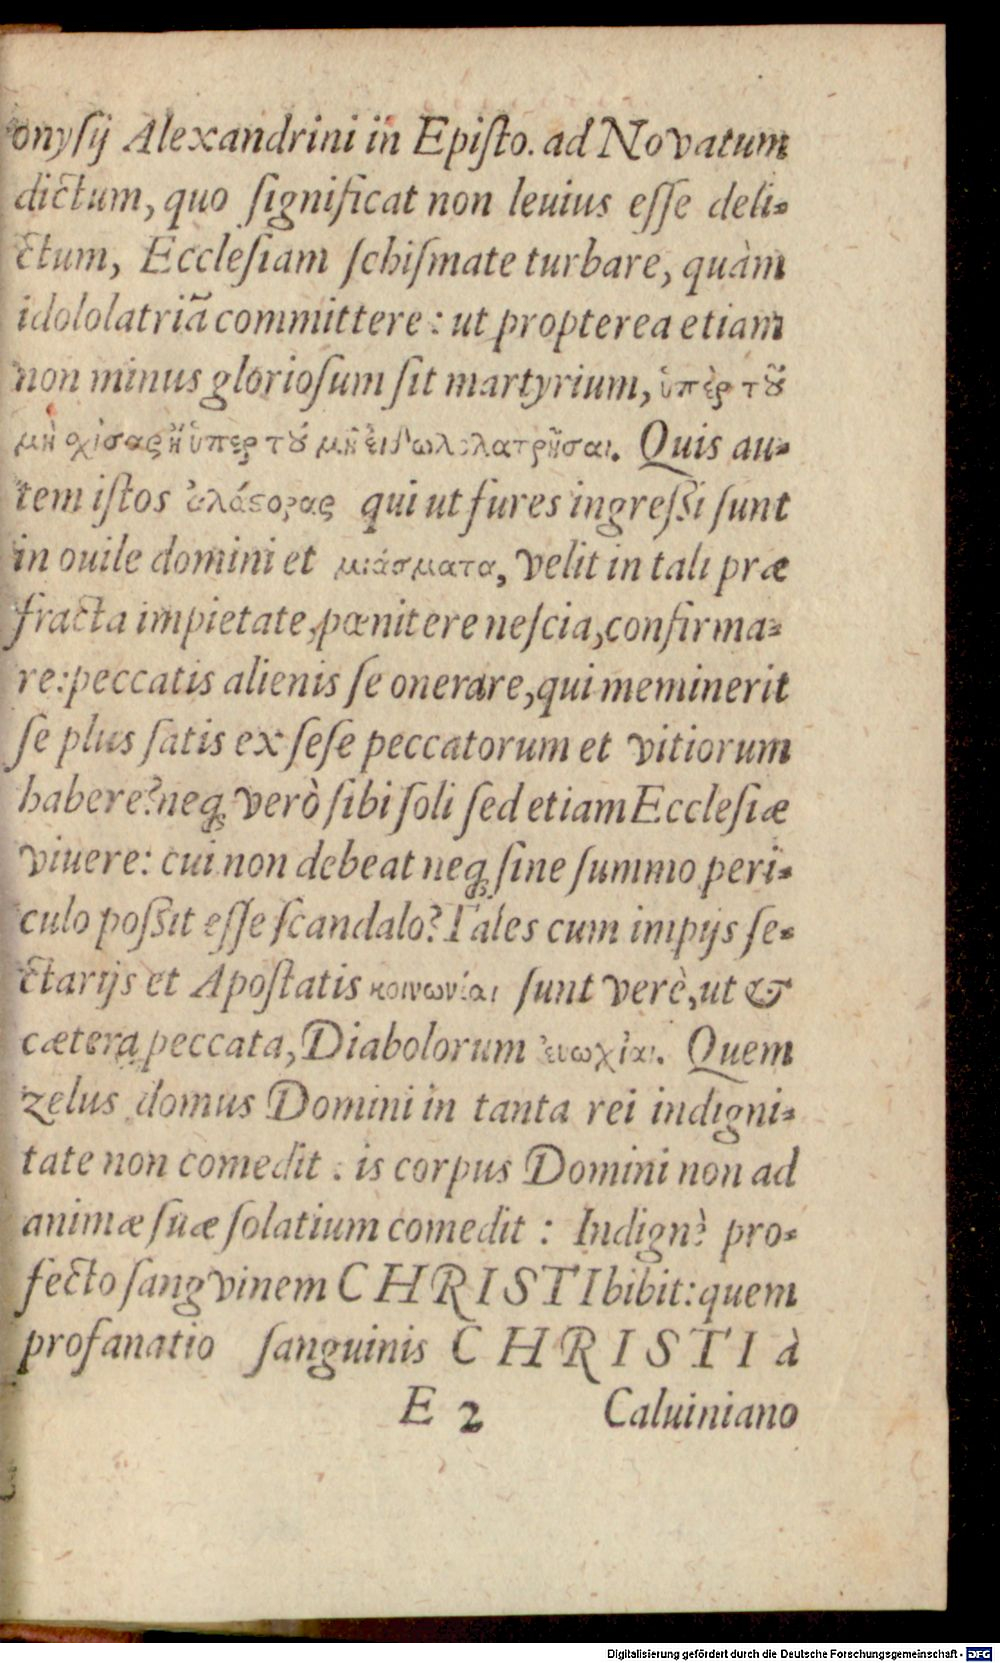 onyſij Alexandrini in Epiſto. ad Novatum
dictum, quo ſignificat non leuius eſſe deli-
ctum, Eccleſiam ſchiſmate turbare, quàm
idololatriã committere: ut propterea etiam
non minus glorioſum ſit martyrium, ὑπὲρ τȣ͂
μὴ σχίσας ἢ ὑπὲρ τȣ͂ μὴ ἐιδωλολατρῆσαι. Quis au-
tem iſtos ἀλάϛορας qui ut fures ingreſſi ſunt
in ouile domini et μιάσματα, velit in tali præ
fracta impietate, pœnitere neſcia, confirma-
re: peccatis alienis ſe onerare, qui meminerit
ſe plus ſatis ex ſeſe peccatorum et vitiorum
habere? neq; verò ſibi ſoli ſed etiam Eccleſiæ
viuere: cui non debeat neq; ſine ſummo peri-
culo poſſit eſſe ſcandalo? Tales cum impijs ſe-
ctarijs et Apoſtatis κοινωνίαι ſunt verè, ut &
cætera peccata, Diabolorum ἐυωχίαι. Quem
zelus domus Domini in tanta rei indigni-
tate non comedit: is corpus Domini non ad
animæ ſuæ ſolatium comedit: Indignè pro-
fecto ſangvinem CHRISTI bibit: quem
profanatio ſanguinis CHRISTI à
E 2 Caluiniano
Digitalisierung gefördert durch die Deutsche Forschungsgemeinschaft - DFG